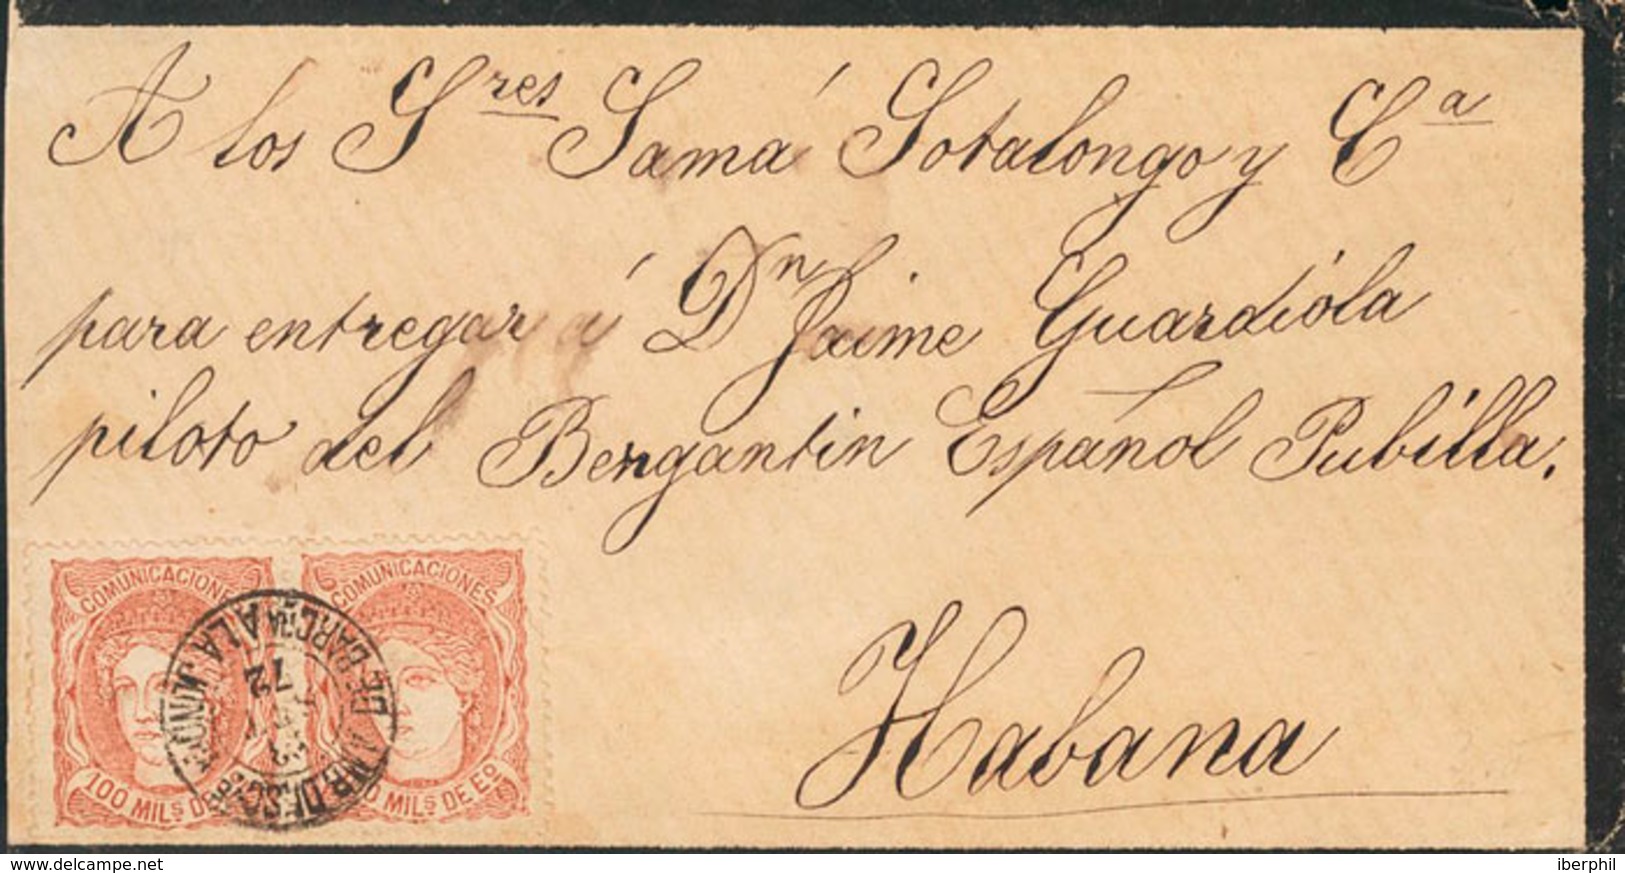 A los S.res Samá Sotolongo y C.a
para entregar á Dn Jaime Guardiola
piloto del Bergantin Español Pubilla.
Habana
COMUNICACIONES COMUNICACIONES
100 MILS DE 0 MILS DE EO
AMB. DESC. DE BARCNA A LA JUNQ.
72
www.delcampe.net
iberphil